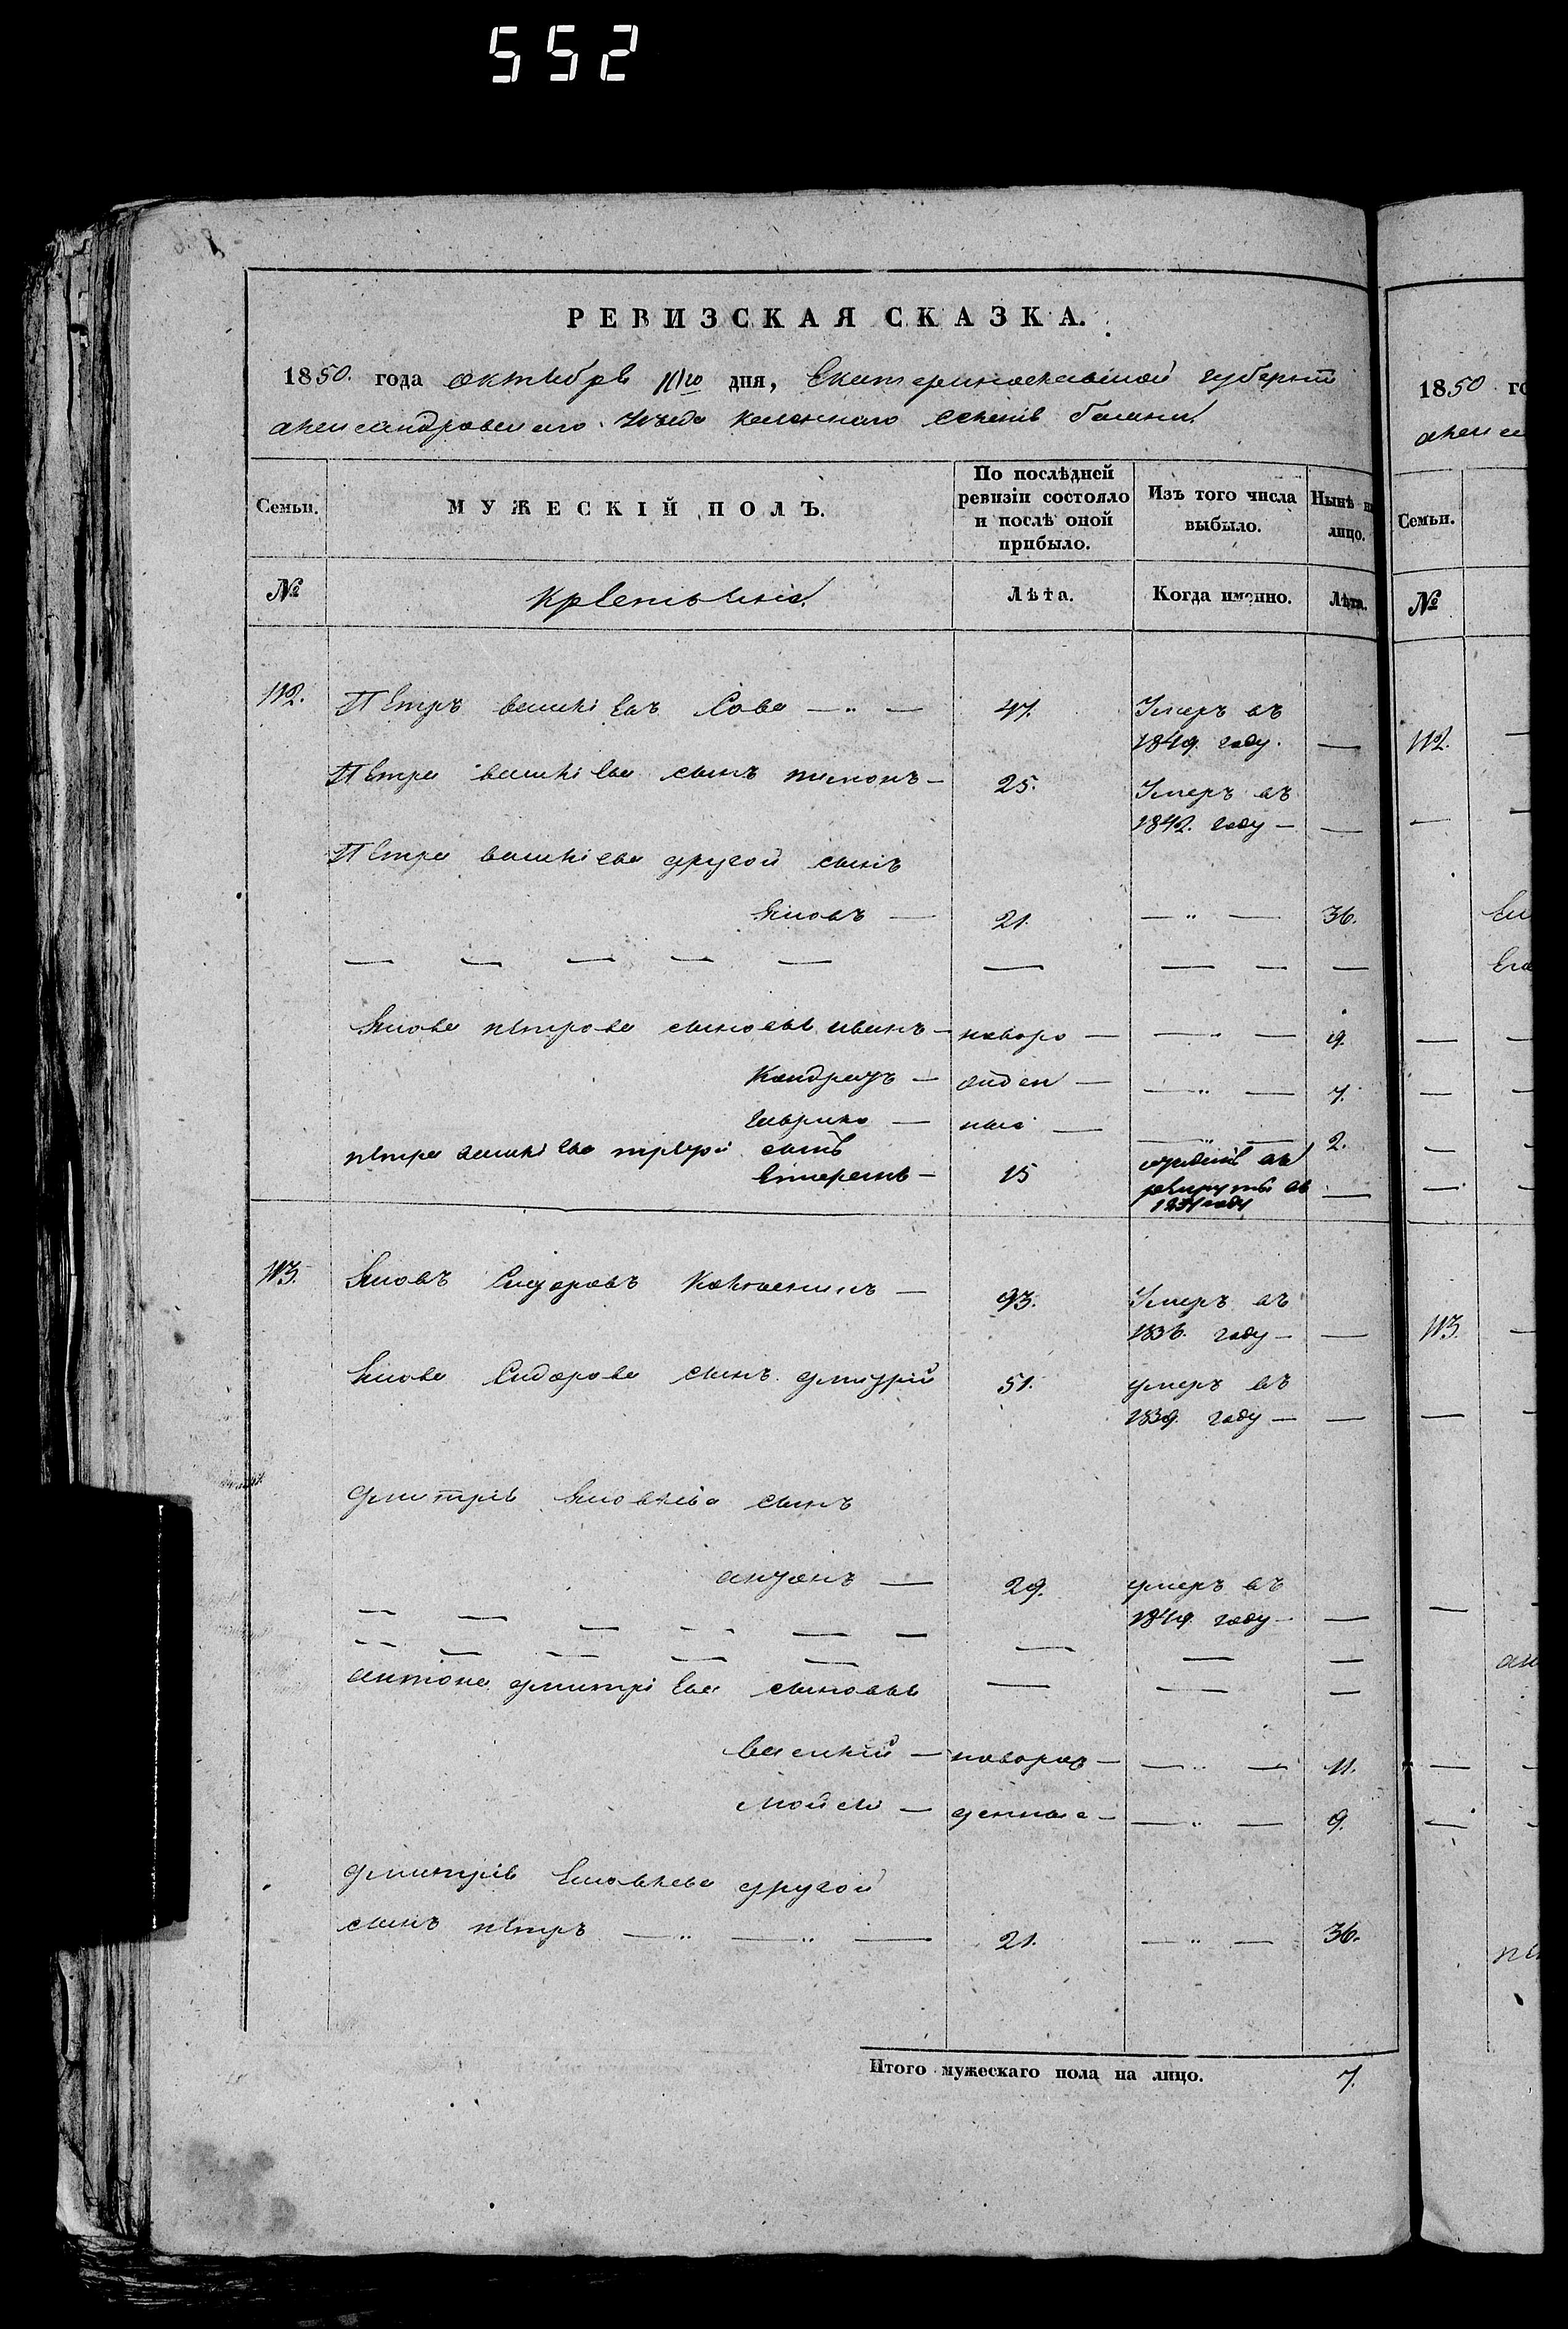 552
РЕВИЗСКАЯ СКАЗКА.
1850. года октября дня, Екатеринославской губерніи
александровскаго уѣзда казеннаго селенія
Семьи.
МУЖЕСКІЙ ПОЛЪ.
По послѣдней ревизіи состояло и послѣ оной прибыло.
Изъ того числа выбыло.
Нынѣ на лицо.
№
Крестьяне
Лѣта.
Когда именно.
Лѣта.
112. Петръ василіевъ Сова — „ — 47. Умеръ въ
1849. году. —
Петра василіева сынъ — 25. Умеръ въ
1842. году — —
Петра василіева другой сынъ
Яковъ — 21. — „ — 36.
Якова петрова сыновья иванъ — новоро — — „ — 9.
Кондратъ — жден — — „ — 7.
гаврило — ные — — „ — 2.
петра василіева третій сынъ
15 въ
рекруты въ
году —
113. Яковъ Сидоровъ — 93. Умеръ въ
1836. году — —
Якова Сидорова сынъ дмитрій 51. умеръ въ
1839. году — —
дмитрія яковлева сынъ
антонъ — 29. умеръ въ
1849. году — —
антона дмитріева сыновья — — —
василій — новорож — — „ — 11.
мойсей — денные — — „ — 9.
дмитрія яковлева другой
сынъ петръ — „ — „ — 21. — „ — 36.
Итого мужескаго пола на лицо. 7.
1850 го
Семьи.
№
112.
113.